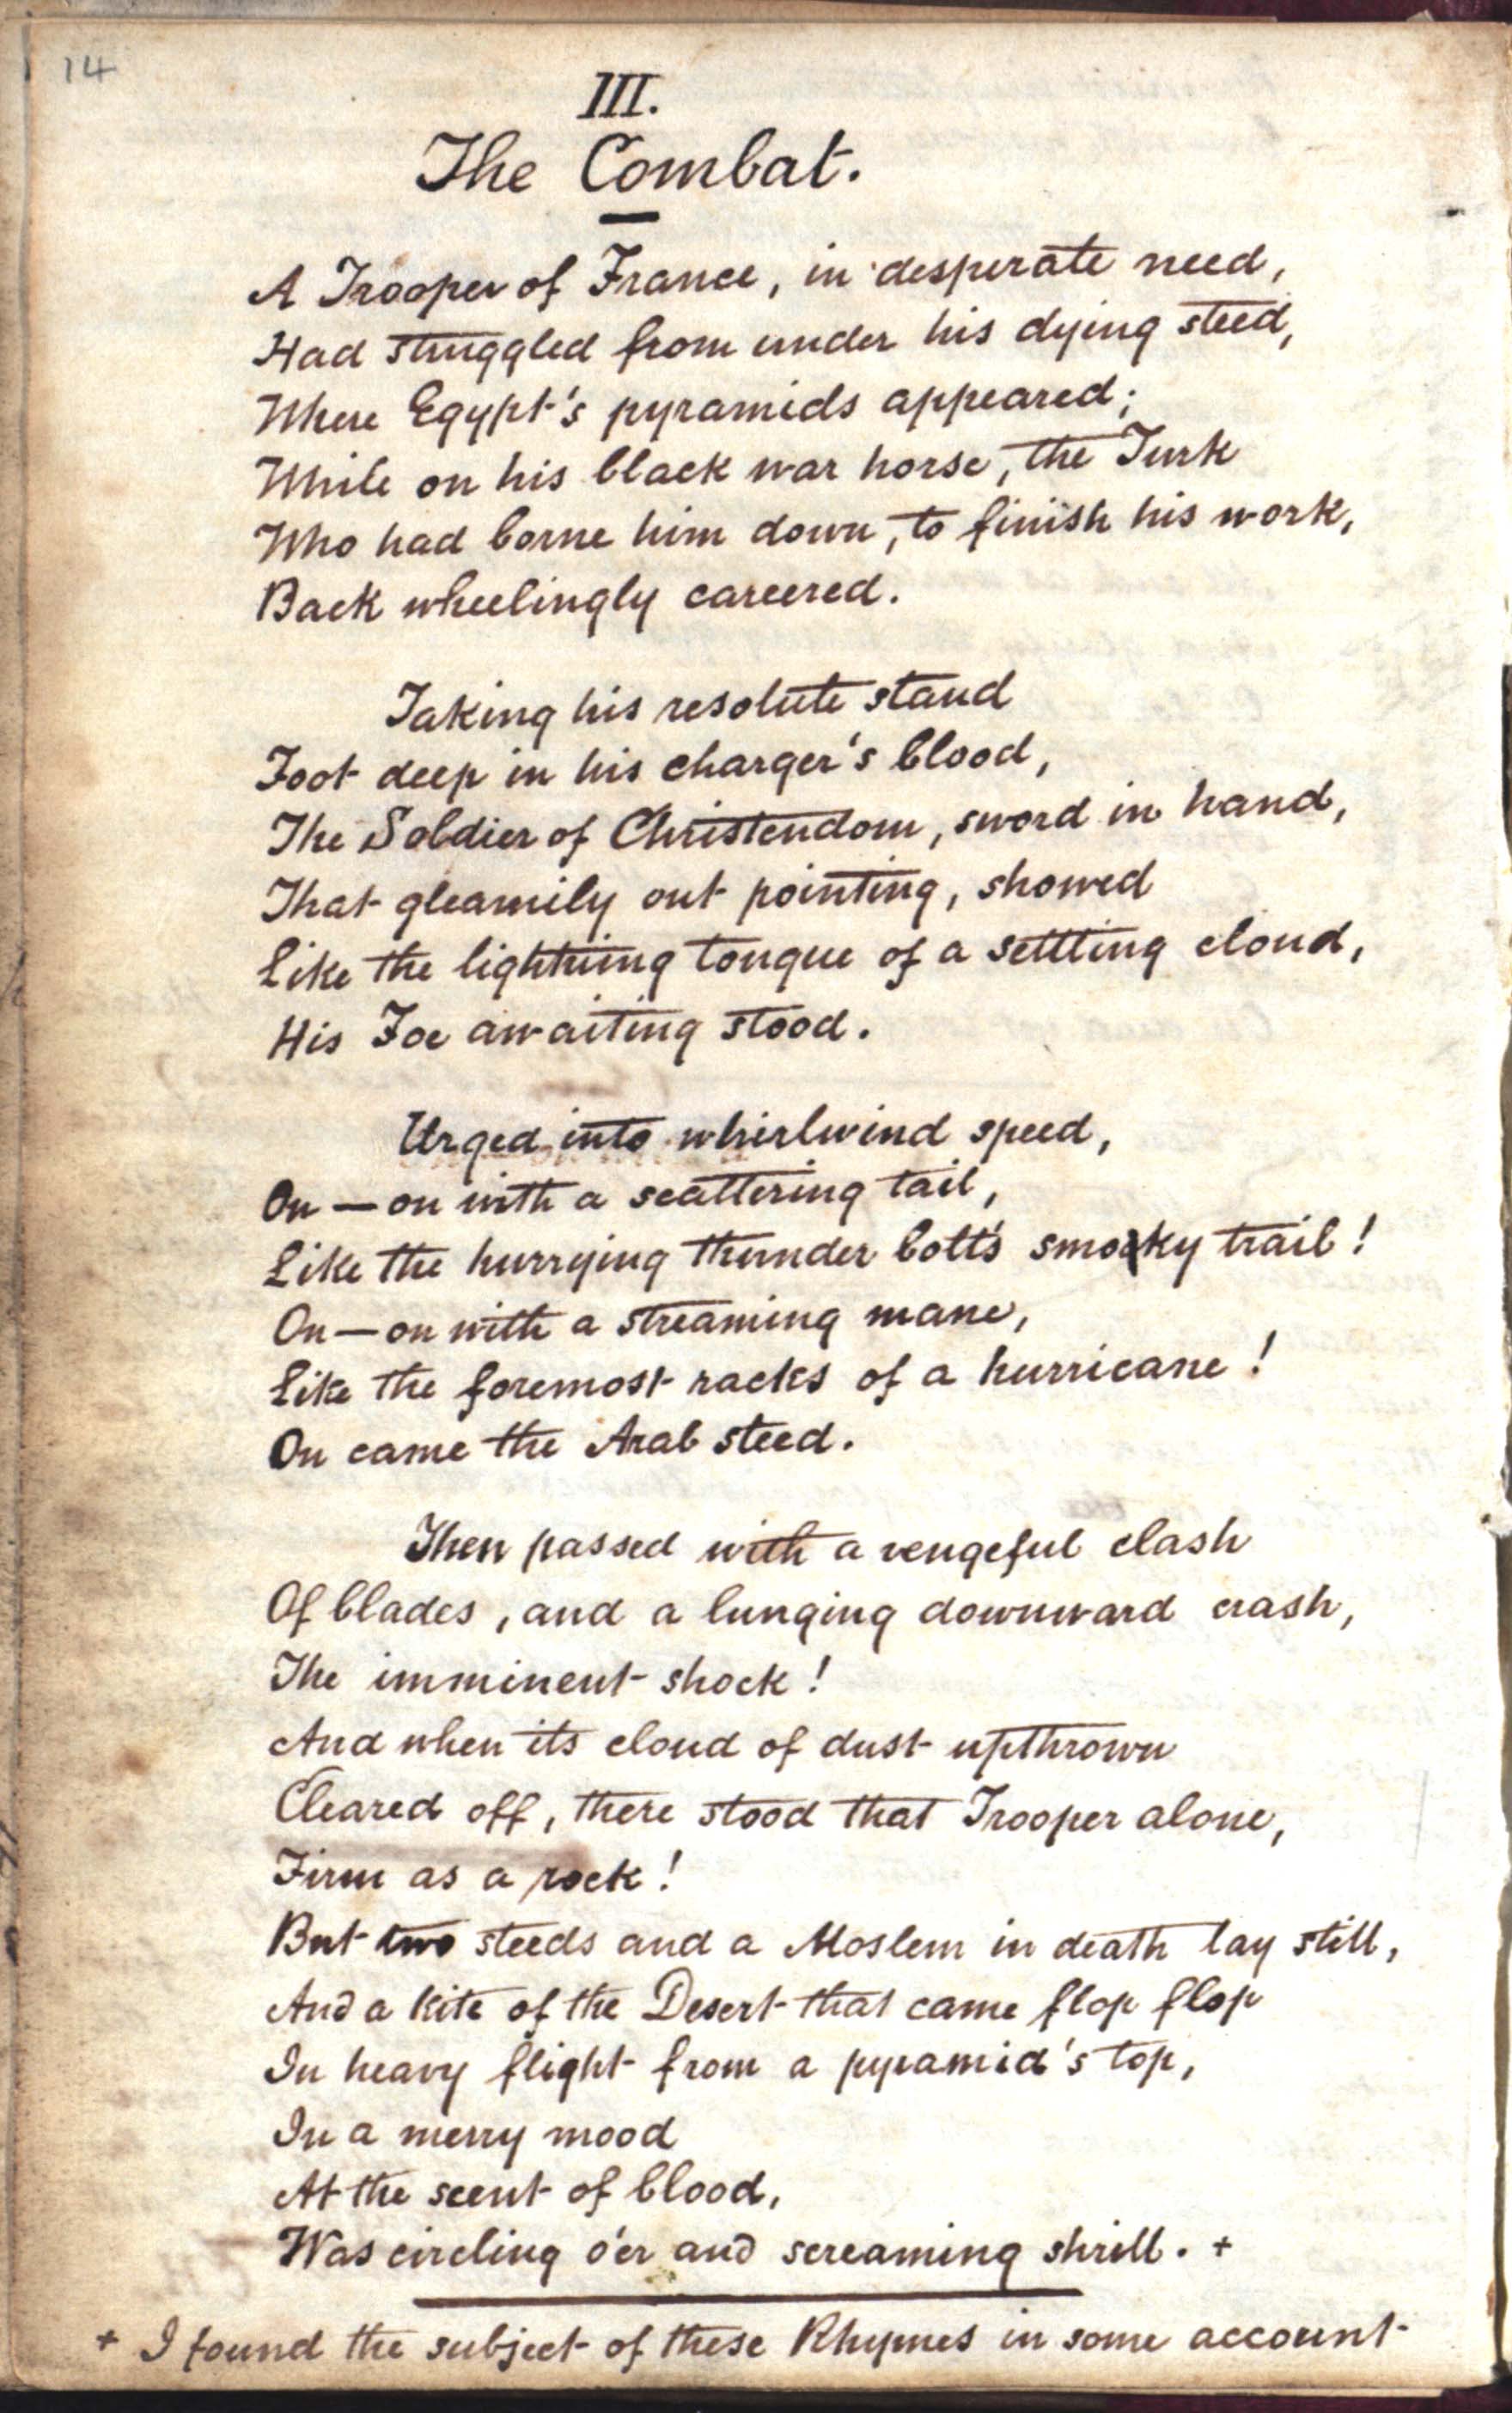 14
III.
The Combat.
A Trooper of France, in desperate need,
Had struggled from under his dying steed,
Where Egypt's pyramids appeared;
While on his black war horse, the Turk
Who had borne him down, to finish his work,
Back wheelingly careered.
Taking his resolute stand
Foot deep in his charger's blood,
The Soldier of Christendom, sword in hand,
That gleamily out pointing, showed
Like the lightning tongue of a settling cloud,
His Foe awaiting stood.
Urged into whirlwind speed,
On — on with a scattering tail,
Like the hurrying thunder bolt's smoky trail!
On — on with a streaming mane,
Like the foremost racks of a hurricane!
On came the Arab steed.
Then passed with a vengeful clash
Of blades, and a lunging downward crash,
The imminent shock!
And when its cloud of dust upthrown
Cleared off, there stood that Trooper alone,
Firm as a rock!
But two steeds and a Moslem in death lay still,
And a kite of the Desert that came flop flop
In heavy flight from a pyramid's top,
In a merry mood
At the scent of blood,
Was circling o'er and screaming shrill. +
+ I found the subject of these Rhymes in some account